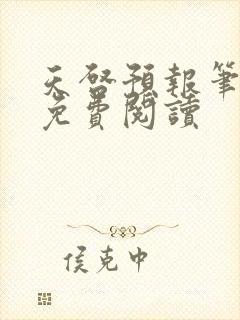 天啓預報筆
免費閱讀
侯克中